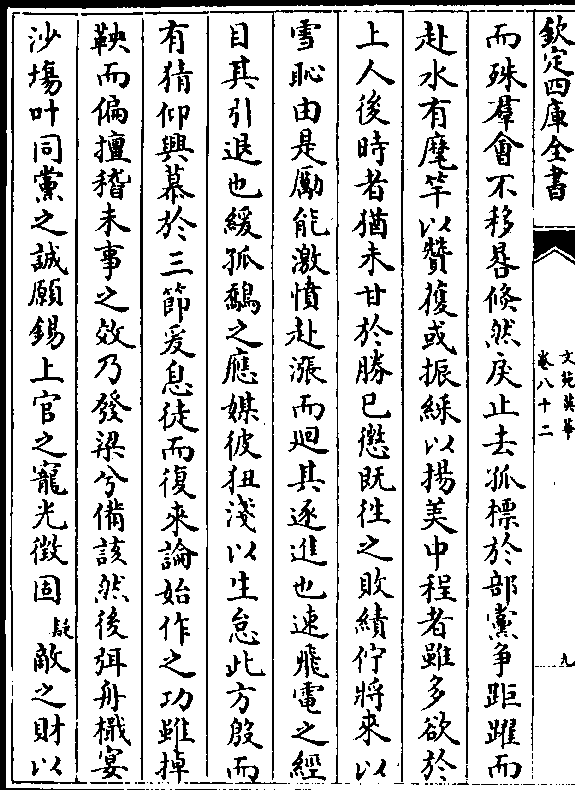 欽定四庫全書
文苑英華
卷八十二
九
而殊羣會不移晷倏然戾止去孤標於部黨爭距躍而
赴水有麾竿以贊獲或振綵以揚美中程者雖多欲於
上人後時者猶未甘於勝已懲既徃之敗績佇將來以
雪恥由是勵能激憤赴漲而迴其逐進也速飛電之經
目其引退也緩孤鷁之應媒彼狃淺以生怠此方殷而
有猜仰興慕於三節爰息徒而復來論始作之功雖掉
鞅而偏擅稽末事之效乃發梁兮備該然後弭舟檝宴
沙塲叶同黨之誠願錫上官之寵光徵固疑敵之財以